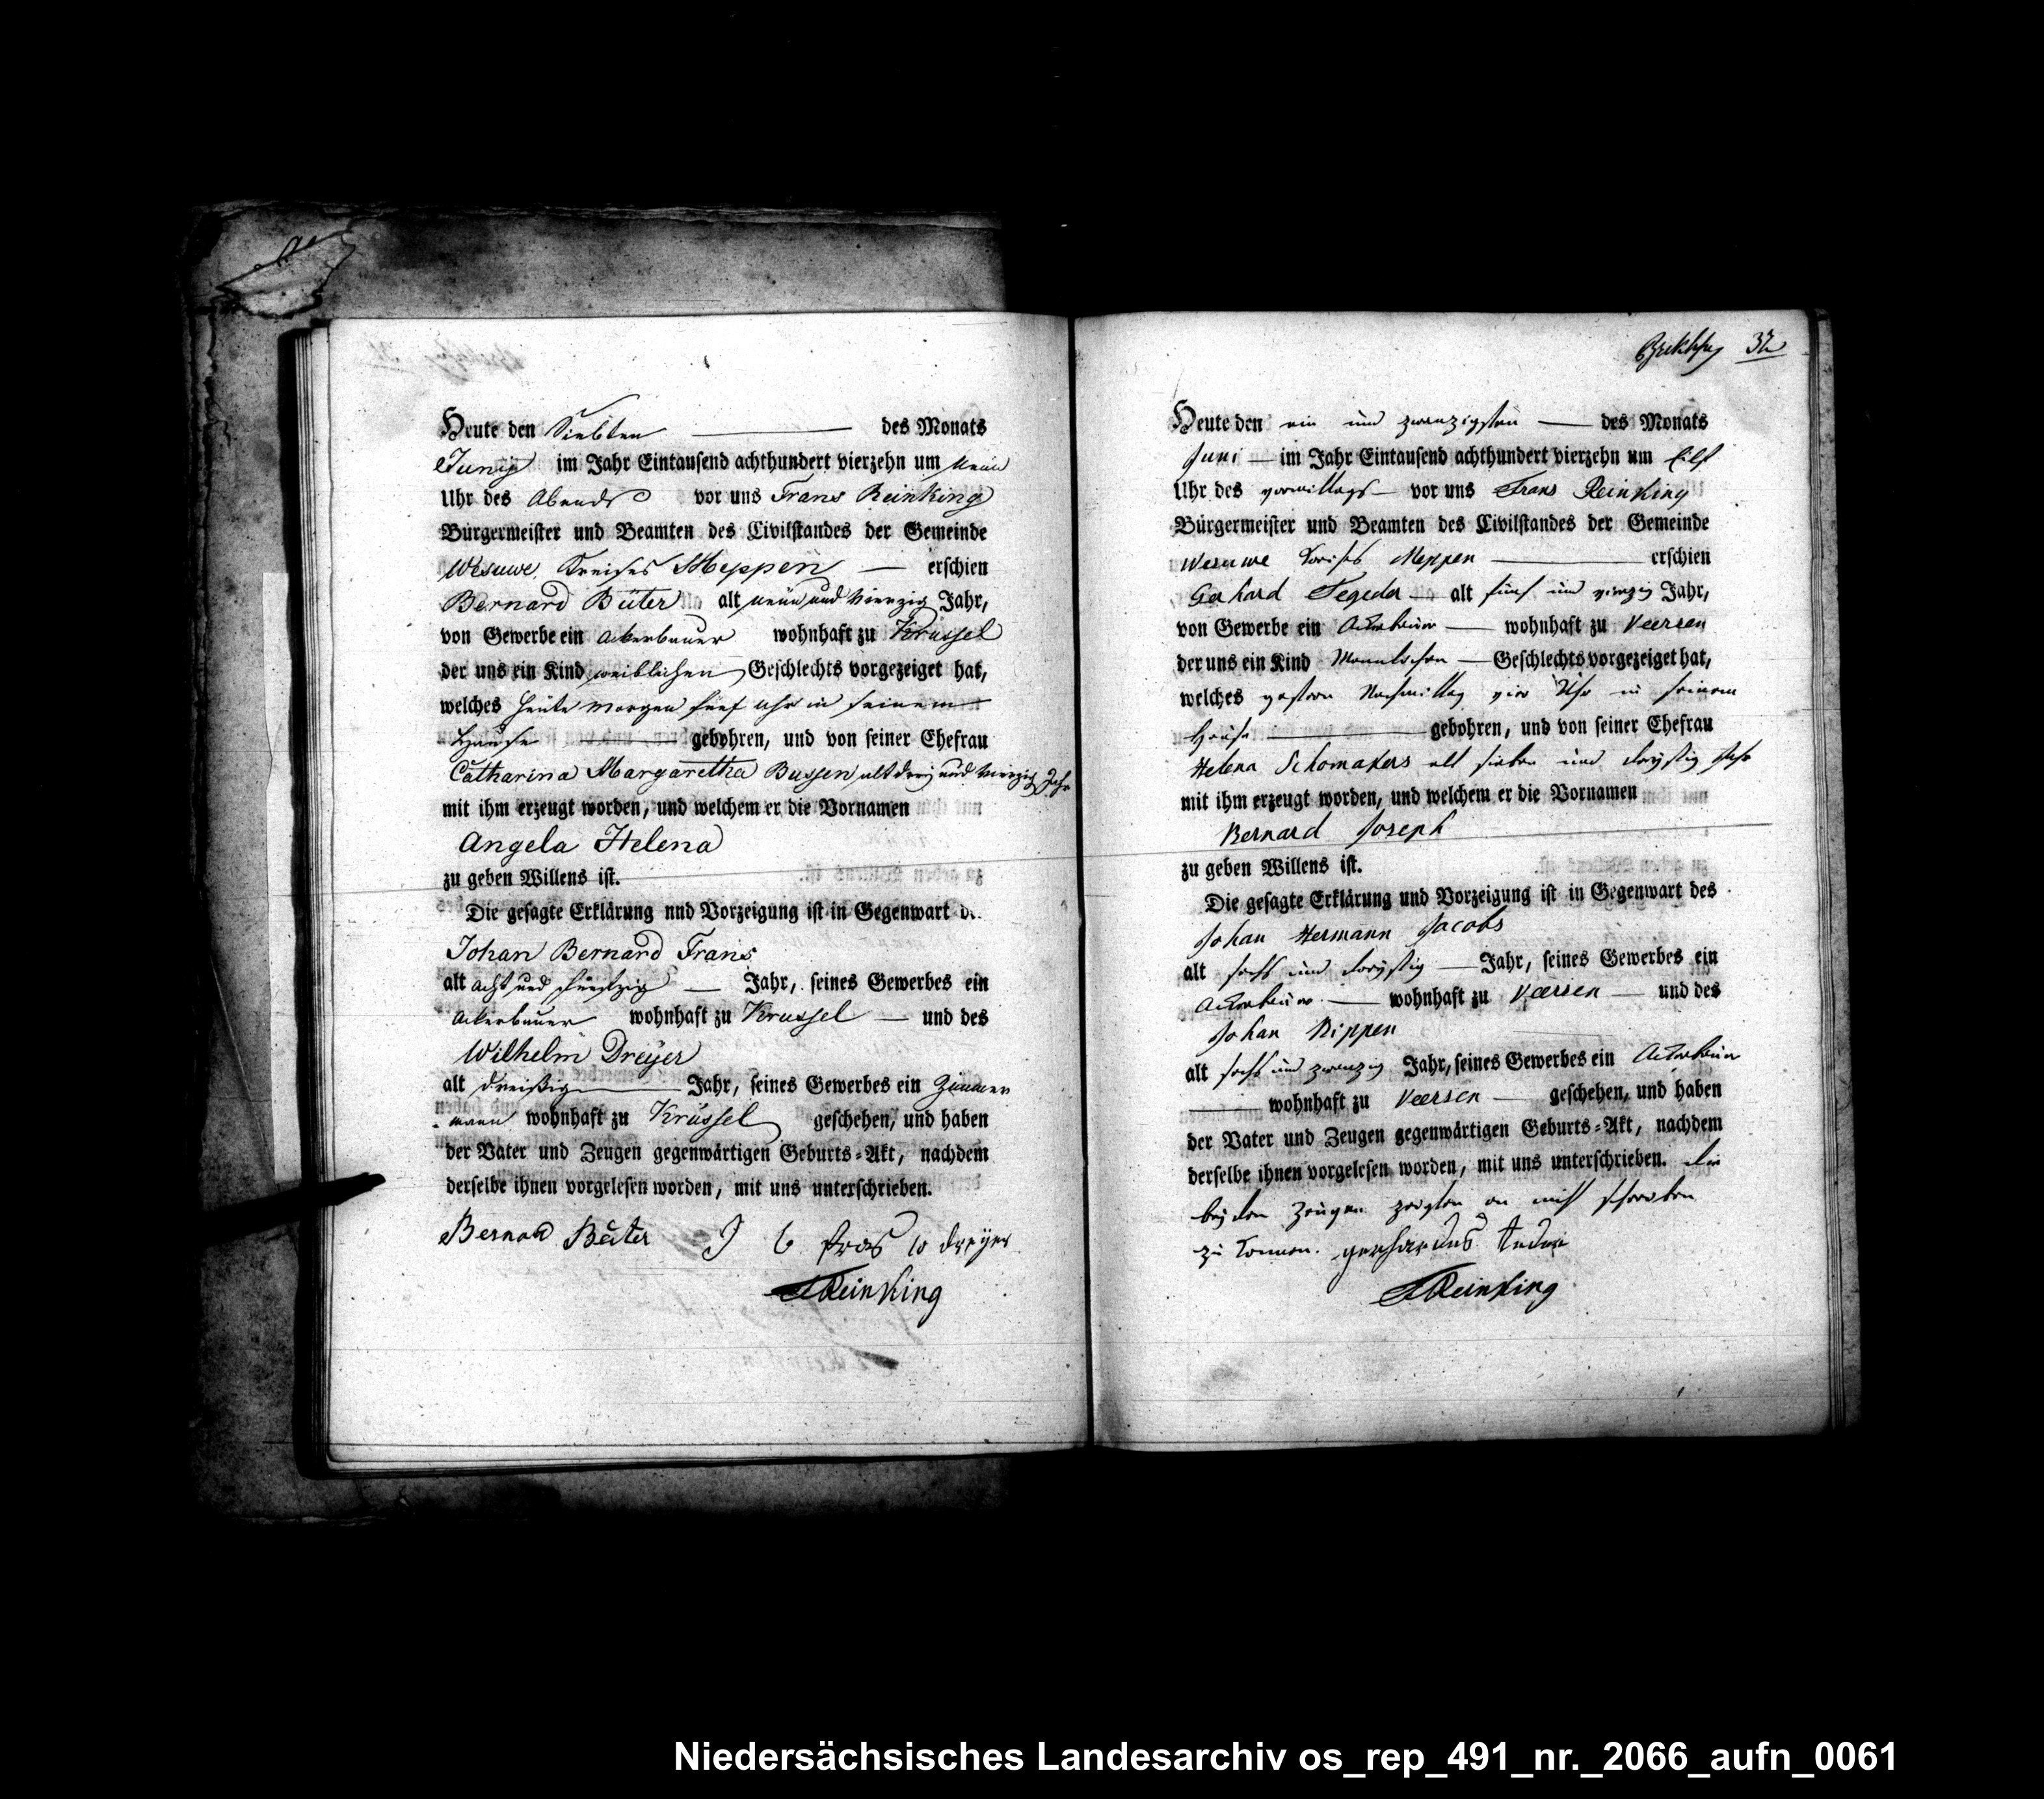 Heute den Siebten des Monats
Juny im Jahr Eintausend achthundert vierzehn um neun
Uhr des Abends vor uns Frans Reinking
Bürgermeister und Beamten des Civilstandes der Gemeinde
Wesuwe Kreises Meppen erschien
Bernard Büter alt neun und vierzig Jahr,
von Gewerbe ein Ackerbauer wohnhaft zu Krüssel
der uns ein Kind weiblichen Geschlechts vorgezeiget hat,
welches heute morgen fünf uhr in seinem
Hause gebohren, und von seiner Ehefrau
Catharina Margaretha Bussen alt drey und vierzig Jahr
mit ihm erzeugt worden, und welchem er die Vornamen
Angela Helena
zu geben Willens ist.
Die gesagte Erklärung nnd Vorzeigung ist in Gegenwart de
Johan Bernard Frans
alt acht und fünfzig Jahr, seines Gewerbes ein
Ackerbauer wohnhaft zu Krussel und des
Wilhelm Dreÿer
alt dreißig Jahr, seines Gewerbes ein Zimmer
-mann wohnhaft zu Krüssel geschehen, und haben
der Vater und Zeugen gegenwärtigen Geburts=Akt, nachdem
derselbe ihnen vorgelesen worden, mit uns unterschrieben.
Bernard Büter J b frans w dreÿer
FReinking
32
Heute den ein und zwanzigsten des Monats
Juni im Jahr Eintausend achthundert vierzehn um Eilf
Uhr des vormittags vor uns Frans Reinking
Bürgermeister und Beamten des Civilstandes der Gemeinde
Wesuwe Kreises Meppen erschien
Gerhard Tegeder alt fünf und vierzig Jahr,
von Gewerbe ein Ackerbauer wohnhaft zu Veersen
der uns ein Kind Mannlichen Geschlechts vorgezeiget hat,
welches gestern Nachmittag vier Uhr in seinem
Hause gebohren, und von seiner Ehefrau
Helena Schomakers alt sieben und dreyssig Jahr
mit ihm erzeugt worden, und welchem er die Vornamen
Bernard Joseph
zu geben Willens ist.
Die gesagte Erklärung und Vorzeigung ist in Gegenwart des
Johan Hermann Jacobs
alt sechs und dreyssig Jahr, seines Gewerbes ein
Ackerbauer wohnhaft zu Veersen und des
Johan Rippen
alt sechs und zwanzig Jahr, seines Gewerbes ein Ackerbauer
wohnhaft zu Veersen geschehen, und haben
der Vater und Zeugen gegenwärtigen Geburts=Akt, nachdem
derselbe ihnen vorgelesen worden, mit uns unterschrieben. die
beyden Zeugen zeigten an nicht schreiben
zu konnen. gerhardus
FReinking
Niedersächsisches Landesarchiv os_rep_491_nr._2066_aufn_0061